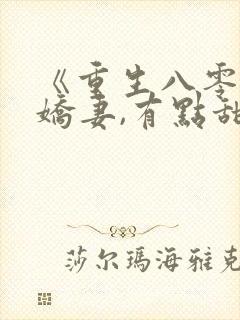 《重生八零
嬌妻,有點甜
莎尔瑪海雅克